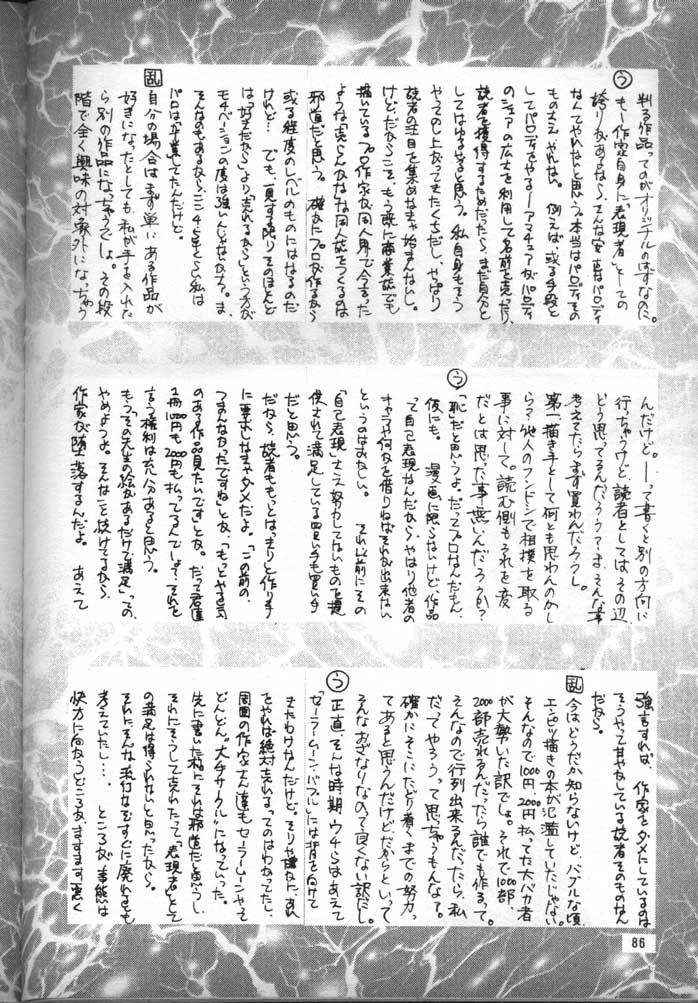 判る作品ってのがオリジナルのはずなのに。
う
もし作家自身に「表現者」としての
誇りがあるなら、そんな安直なパロディ
なんてやれないと思う。本当はパロディその
ものさえやれない。例えば、或る手段と
してパロディをやる――アマチュアがパロディ
のシェアの広さを利用して名前を売ったり、
読者を獲得するためだったら、まだ自分と
してはゆるせると思う。私自身もそう
やってのし上がってきたくちだし、やっぱり
読者の注目を集めなきゃ始まんないし。
けど、だからこそ、もう既に商業誌でも
描いているプロ作家が同人界で今さらった
ような実らんかなな同人誌をつくるのは
邪道だと思う。確かにプロが作るから
或る程度のレベルのものにはなるのだ
けれど…でも、一見する限りそのほとんど
は「好きだから」より「売れるから」という方が
モチベーションの度は強いんじゃないかナ?ま、
そんなのもあるから、ここ3～4年くらい私は
パロは"卒業"してたんだけど。
乱
自分の場合はまず単にある作品が
好きになったとしても、私が手を入れた
ら別の作品になっちゃうしょ。その段
階で全く興味の対象外になっちゃう
んだけど。――って書くと別の方向に
行っちゃうけど読者としてはその辺
どう思ってるんだろうかァ?ま、そんな事
考えてたらまず買わんだろうし。
第一描き手として何とも思わんのかし
ら?他人のフンドシで相撲を取る
事に対して。読む側もそれを変
だとは思った事無いんだろうか?
う
「恥」だと思うよ。だってプロなんだもん、
仮にも。漫画に限らないけど、作品
って自己表現なんだから、やはり他者の
キャラや何かを借りねばそれが出来ない
というのはおかしい。それ以前にその
「自己表現」さえ努力してないものを提
供されて満足している買い手も買い手
だと思う。
だから、読者ももっとはっきりと作り手
に要求しなきゃダメだよ。「この前の、
つまんなかったですね」とか、「もっとやる気
のある作品見たいです」とか。だって君達
1冊1000円も2000円も払ってるんでしょ?それを
言う権利は充分あると思う。
もう「その先生の絵があるだけで満足」っての、
やめようよ。そんなこと続けてるから、
作家が堕落するんだよ。あえて
強言すれば、作家をダメにしているのは
そうやって甘やかしている読者そのものなん
だから。
乱
今はどうだか知らないけど、バブルな頃、
エンピツ描きの本が氾濫していたじゃない。
そんなので1000円、2000円払ってた大バカ者
が大勢いた訳でしょ。それで1000部、
2000部売れるんだったら誰でも作るって。
そんなので行列出来るんだったら、私
だってやろう、って思っちゃうもんな。
確かにそこにたどり着くまでの努力っ
てあると思うんだけどだからといって
そんなおざなりなので良くない訳だし。
う
正直、そんな時期ウチらはあえて
「セーラームーン・バブル」には背を向けて
きたわけなんだけど、そりゃ誰か、あれ
をやれば絶対売れるってのはわかってたし、
周囲の作家さん達もセーラームーンやって
どんどん"大手サークル"になっていった。
先に書いた私にそれは邪道だと思うし、
それにそうして売れたって「表現者」として
の満足は得られないと思ったから。
それにそんな流行なぞすぐに廃れるとも
考えていたし…。ところが、事態は
快方に向かうどころか、ますます悪く
86